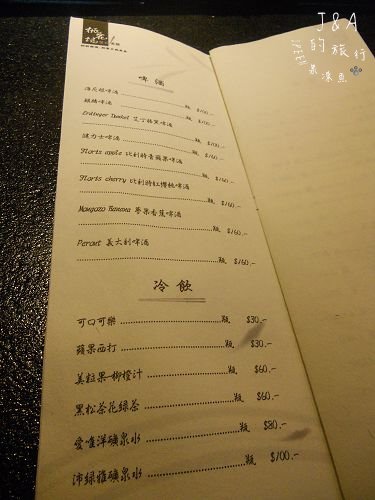 J&A
的旅行
果凍魚
啤酒
海尼根啤酒 瓶 $100.-
麒麟啤酒 瓶 $100.-
Erdinger Dunkel 艾丁格黑啤酒 瓶 $160.-
健力士啤酒 瓶 $160.-
Floris apple 比利時青蘋果啤酒 瓶 $160.-
Floris cherry 比利時紅櫻桃啤酒 瓶 $160.-
Mongozo Banana 芒果香蕉啤酒 瓶 $160.-
義大利啤酒 瓶 $160.-
冷飲
可口可樂 瓶 $30.-
蘋果西打 瓶 $30.-
美粒果-柳橙汁 瓶 $60.-
黑松茶花綠茶 瓶 $60.-
愛唯洋礦泉水 瓶 $80.-
沛綠雅礦泉水 瓶 $100.-